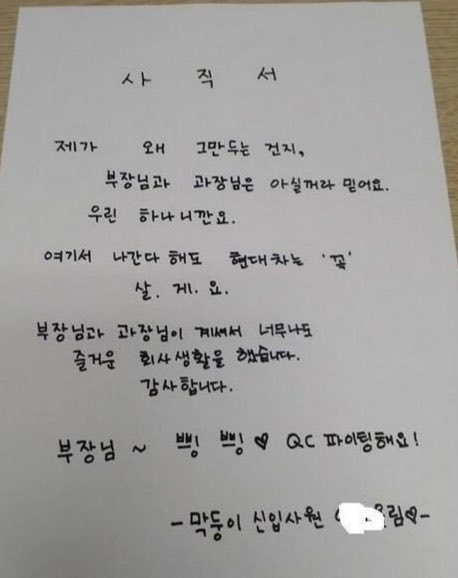 사 직 서
제가 왜 그만두는 건지,
부장님과 과장님은 아실꺼라 믿어요.
우린 하나니깐요.
여기서 나간다 해도 현대차는 '꼮'
살. 게. 요.
부장님과 과장님이 계셔서 너무나도
즐거운 회사생활을 했습니다.
감사합니다.
부장님 ~ 쁘띵 쁘띵 ♡ QC 파이팅해요!
- 막둥이 신입사원 림♡-